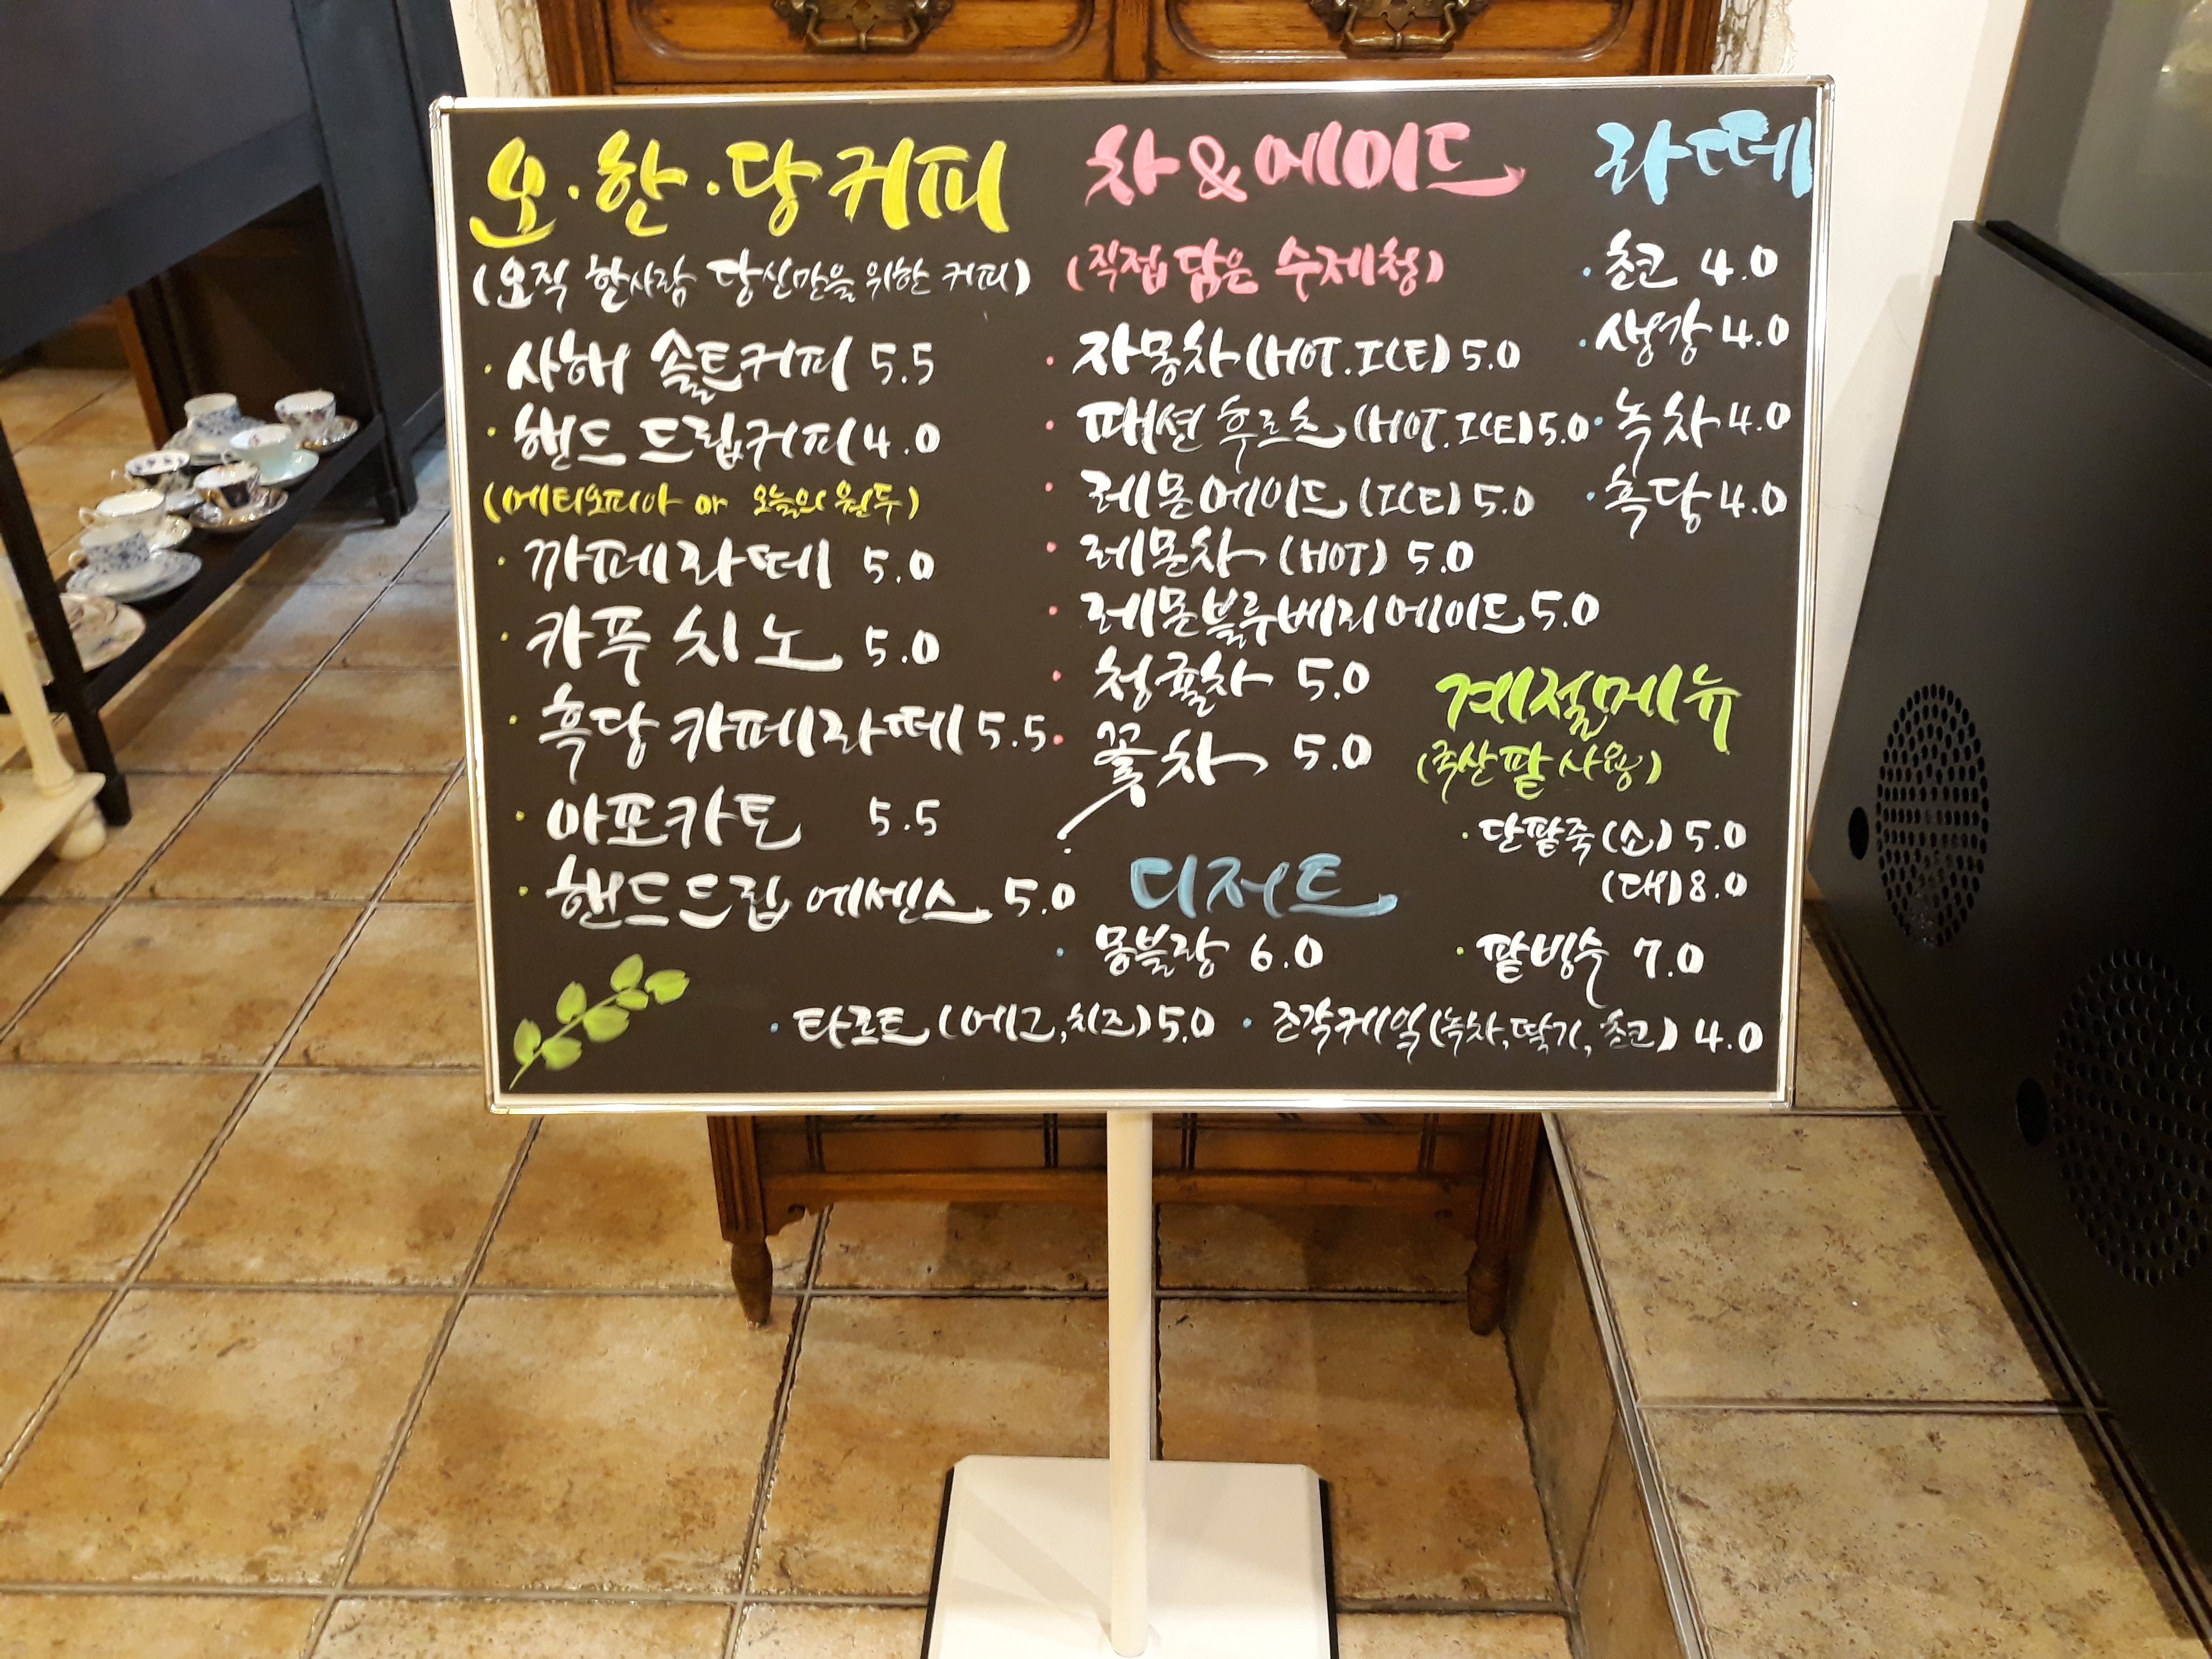 오·한·당 커피
(오직 한사람 당신만을 위한 커피)
· 사해 솔트커피 5.5
· 핸드드립커피 4.0
(에티오피아 or 오늘의 원두)
· 까페라떼 5.0
· 카푸치노 5.0
· 흑당 카페라떼 5.5
· 아포카토 5.5
· 핸드드립 에센스 5.0
차&에이드
(직접 담은 수제청)
· 자몽차 (HOT.ICE) 5.0
· 패션 후르츠 (HOT.ICE) 5.0
· 레몬에이드 (ICE) 5.0
· 레몬차 (HOT) 5.0
· 레몬블루베리에이드 5.0
· 청귤차 5.0
· 꽃차 5.0
라떼
· 초코 4.0
· 생강 4.0
· 녹차 4.0
· 흑당 4.0
계절메뉴
(국산팥 사용)
· 단팥죽 (소) 5.0
(대) 8.0
· 팥빙수 7.0
디저트
· 몽블랑 6.0
· 타르트 (에그, 치즈) 5.0 · 조각케잌 (녹차, 딸기, 초코) 4.0